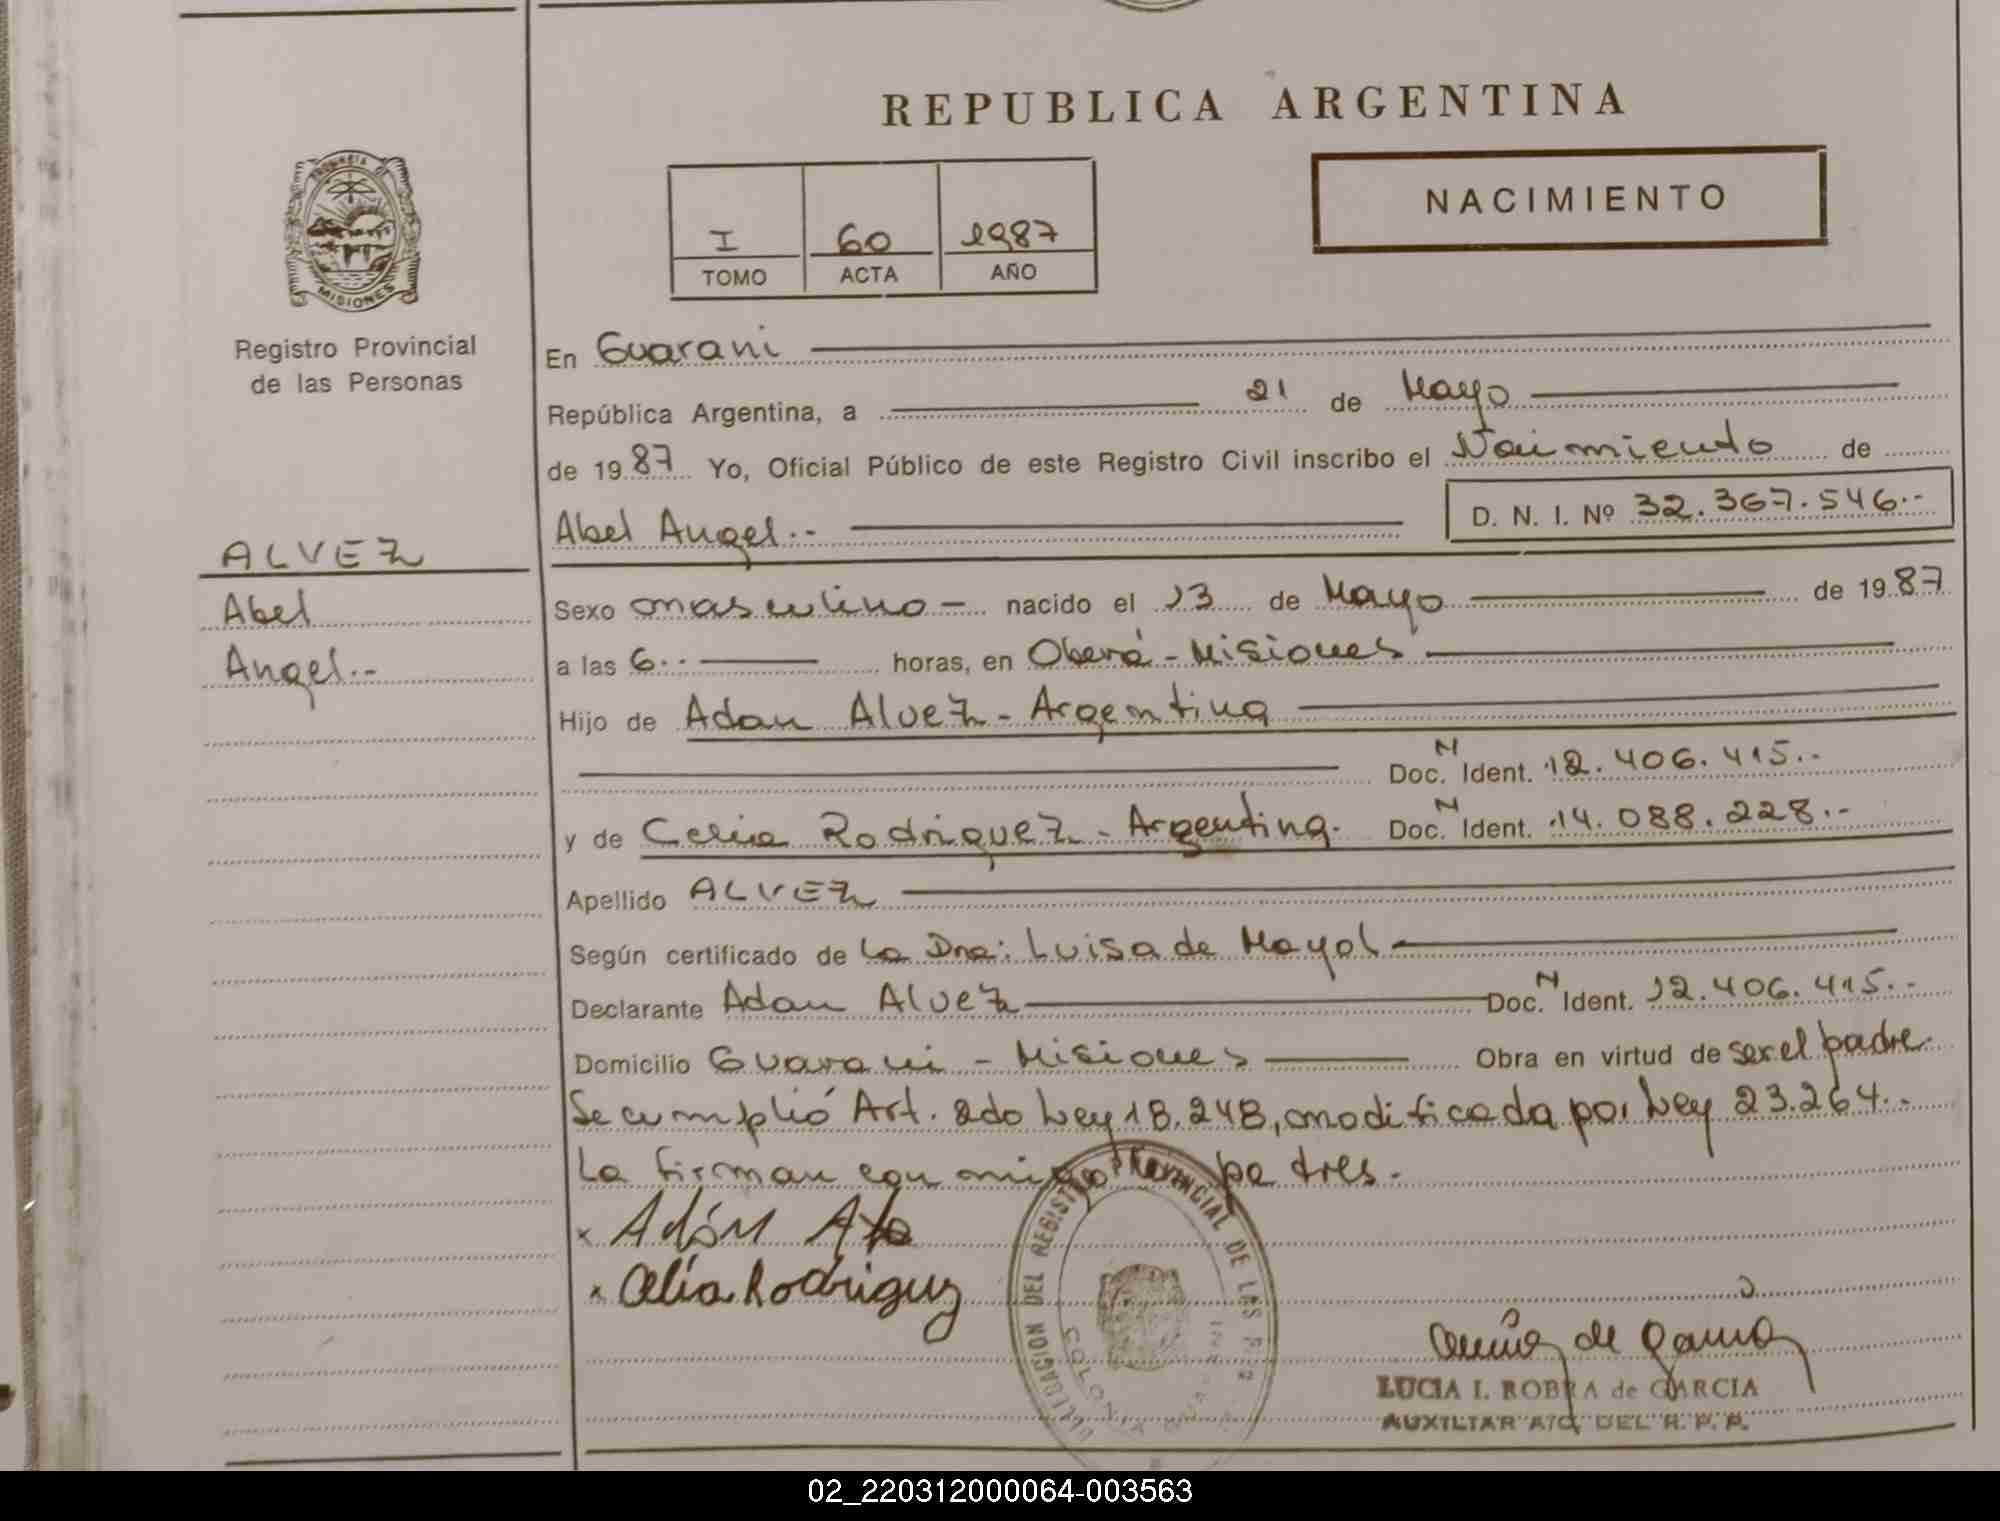 REPUBLICA ARGENTINA
PROVINCIA DE
MISIONES
Registro Provincial
de las Personas
NACIMIENTO
I 60 1987
TOMO ACTA AÑO
ALVEZ
Abel
Angel.-
En Guarani
República Argentina, a 21 de Mayo
de 1987 Yo, Oficial Público de este Registro Civil inscribo el Nacimiento de
Abel Angel.- D. N. I. Nº 32.367.546.-
Sexo masculino - nacido el 13 de Mayo de 1987
a las 6.- horas, en Oberá - Misiones
Hijo de Adan Alvez - Argentina
N
Doc. Ident. 12.406.415.-
N
y de Celia Rodriguez - Argentina. Doc. Ident. 14.088.228.-
Apellido ALVEZ
Según certificado de La Dra: Luisa de Mayol
N
Declarante Adan Alvez Doc. Ident. 12.406.415.-
Domicilio Guarani - Misiones Obra en virtud de ser el padre.
Se cumplió Art. 2do Ley 18.248, modificada por Ley 23.264.-
La firman conmigo padres.
x Adán
x Celia Rodriguez
DELEGACION DEL REGISTRO PROVINCIAL DE LAS
COLONIA
de Garcia
LUCIA I. ROBRA de GARCIA
AUXILIAR A/C. DEL R. P. P.
02_220312000064-003563